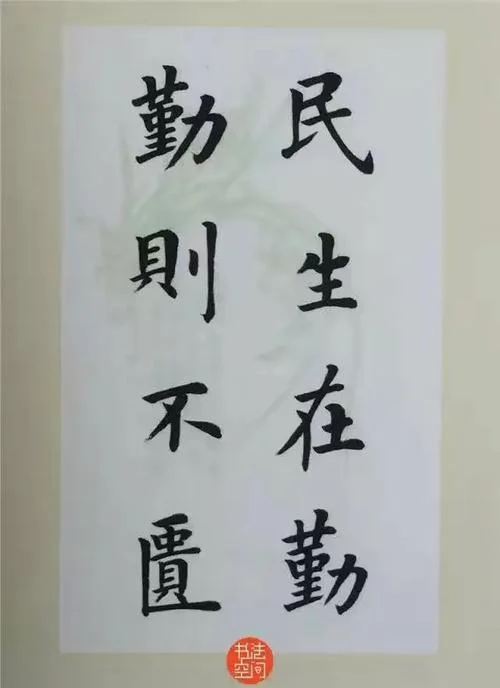 民生在勤
勤則不匱
书法
空间